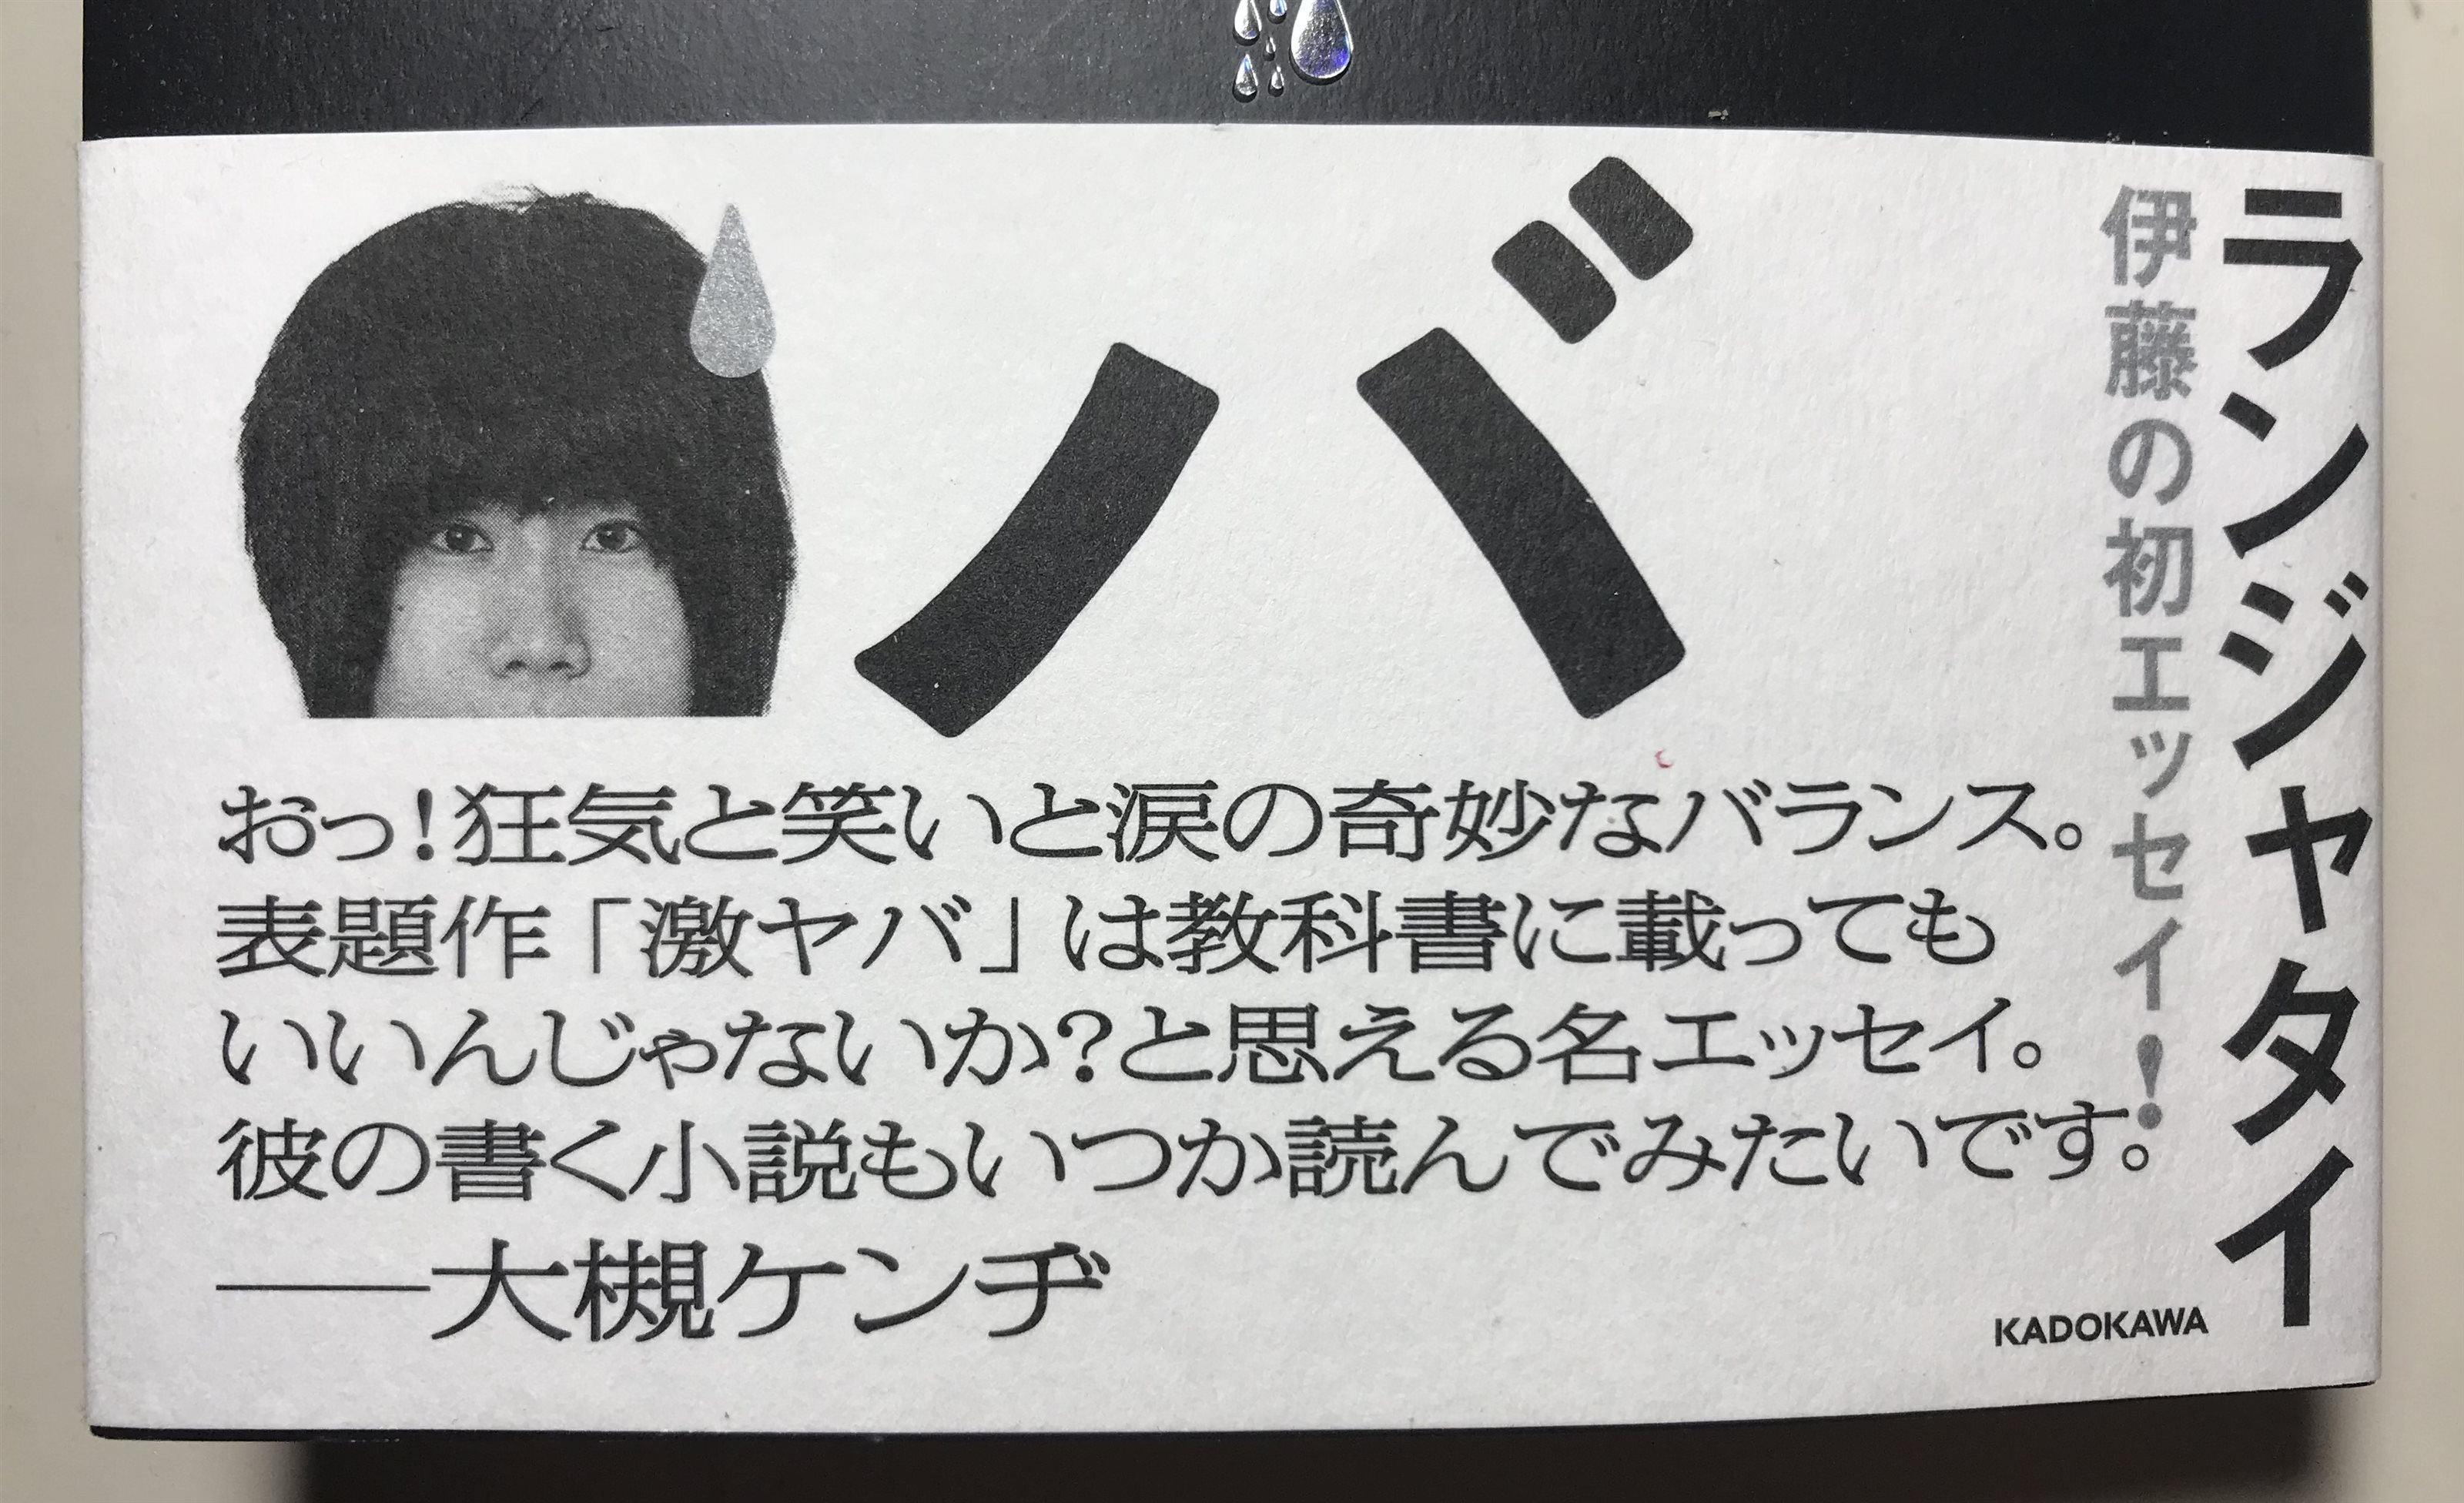 ランジャタイ
伊藤の初エッセイ！
バ
おっ！狂気と笑いと涙の奇妙なバランス。
表題作「激ヤバ」は教科書に載っても
いいんじゃないか？と思える名エッセイ。
彼の書く小説もいつか読んでみたいです。
──大槻ケンヂ
KADOKAWA